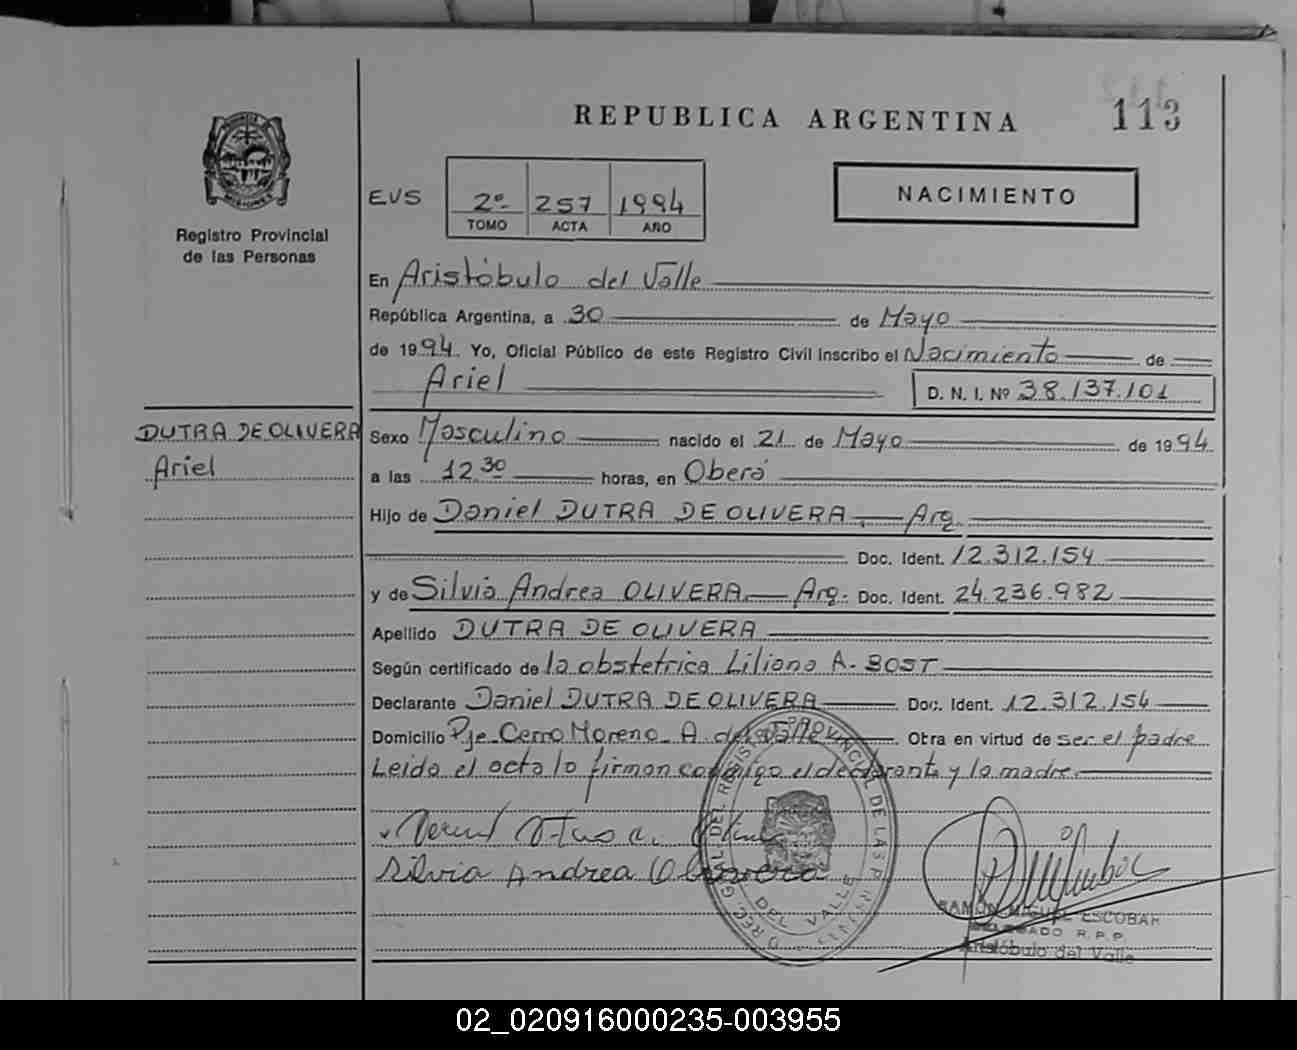 REPUBLICA ARGENTINA
113
MISIONES
Registro Provincial
de las Personas
EVS
2º 257 1994
TOMO ACTA AÑO
NACIMIENTO
En Aristóbulo del Valle
República Argentina, a 30 de Mayo
de 1994. Yo, Oficial Público de este Registro Civil inscribo el Nacimiento de
Ariel
D. N. I. Nº 38.137.101
DUTRA DE OLIVERA
Ariel
Sexo Masculino nacido el 21 de Mayo de 1994
a las 12.30 horas, en Oberá
Hijo de Daniel DUTRA DE OLIVERA. Arg.
Doc. Ident. 12.312.154
y de Silvia Andrea OLIVERA. Arg. Doc. Ident. 24.236.982
Apellido DUTRA DE OLIVERA
Según certificado de la obstetrica Liliana A. BOST
Declarante Daniel DUTRA DE OLIVERA Doc. Ident. 12.312.154
Domicilio Pje. Cerro Moreno. A. del Valle. Otra en virtud de ser el padre
Leida el acta lo firman conmigo el declarante y la madre.
Silvia Andrea Olivera
GRAL. DEL REGISTRO PROVINCIAL DE LAS PERSONAS
DEL VALLE
RAMON MIGUEL ESCOBAR
DELEGADO R. P. P.
Aristóbulo del Valle
02_020916000235-003955